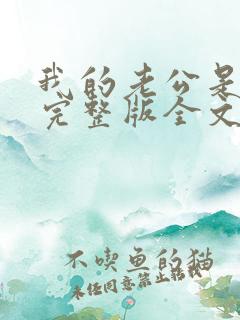 我的老公是
完整版全文
不喫鱼的猫
未经同意禁止转载